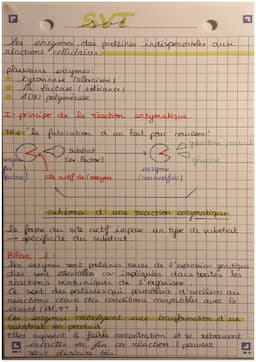 SVT
Les enzymes, des protéines indispensables aux
réactions cellulaires.
plusieurs enzymes:
tyrosinase (albinisme)
la lactase (
ADN polymérase
I - principe de la réaction enzymatique.
TP1: la fabrication d'un lait pour nourrisson:
substrat
(ex: lactose)
galactose
glucose
enzyme
lactase)
site actif de l'enzyme
enzyme
(non modifiée)
schéma d'une réaction enzymatique
la forme du site actif impose un type de substrat
→ spécificité du substrat
Bilan 1:
les enzymes sont protéines issues de l'expression génétique
elles sont essentielles car impliquées dans toutes les
réactions biochimiques de l'organisme.
Ce sont des protéines qui permettent d'accélérer les
réactions dans des conditions compatibles avec le
vivant (PH, T°)
Ces enzymes catalysent une transformation d'un
substrat en produit
elles agissent à faible concentration et se retrouvent
en fin de réaction (peuvent
servir plusieurs fois)